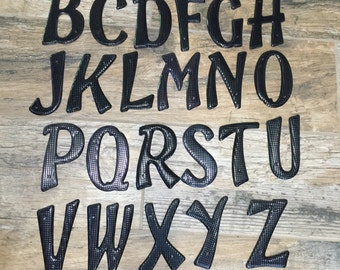 BCDFGH
JKLMNO
PQRSTU
VWXYZ